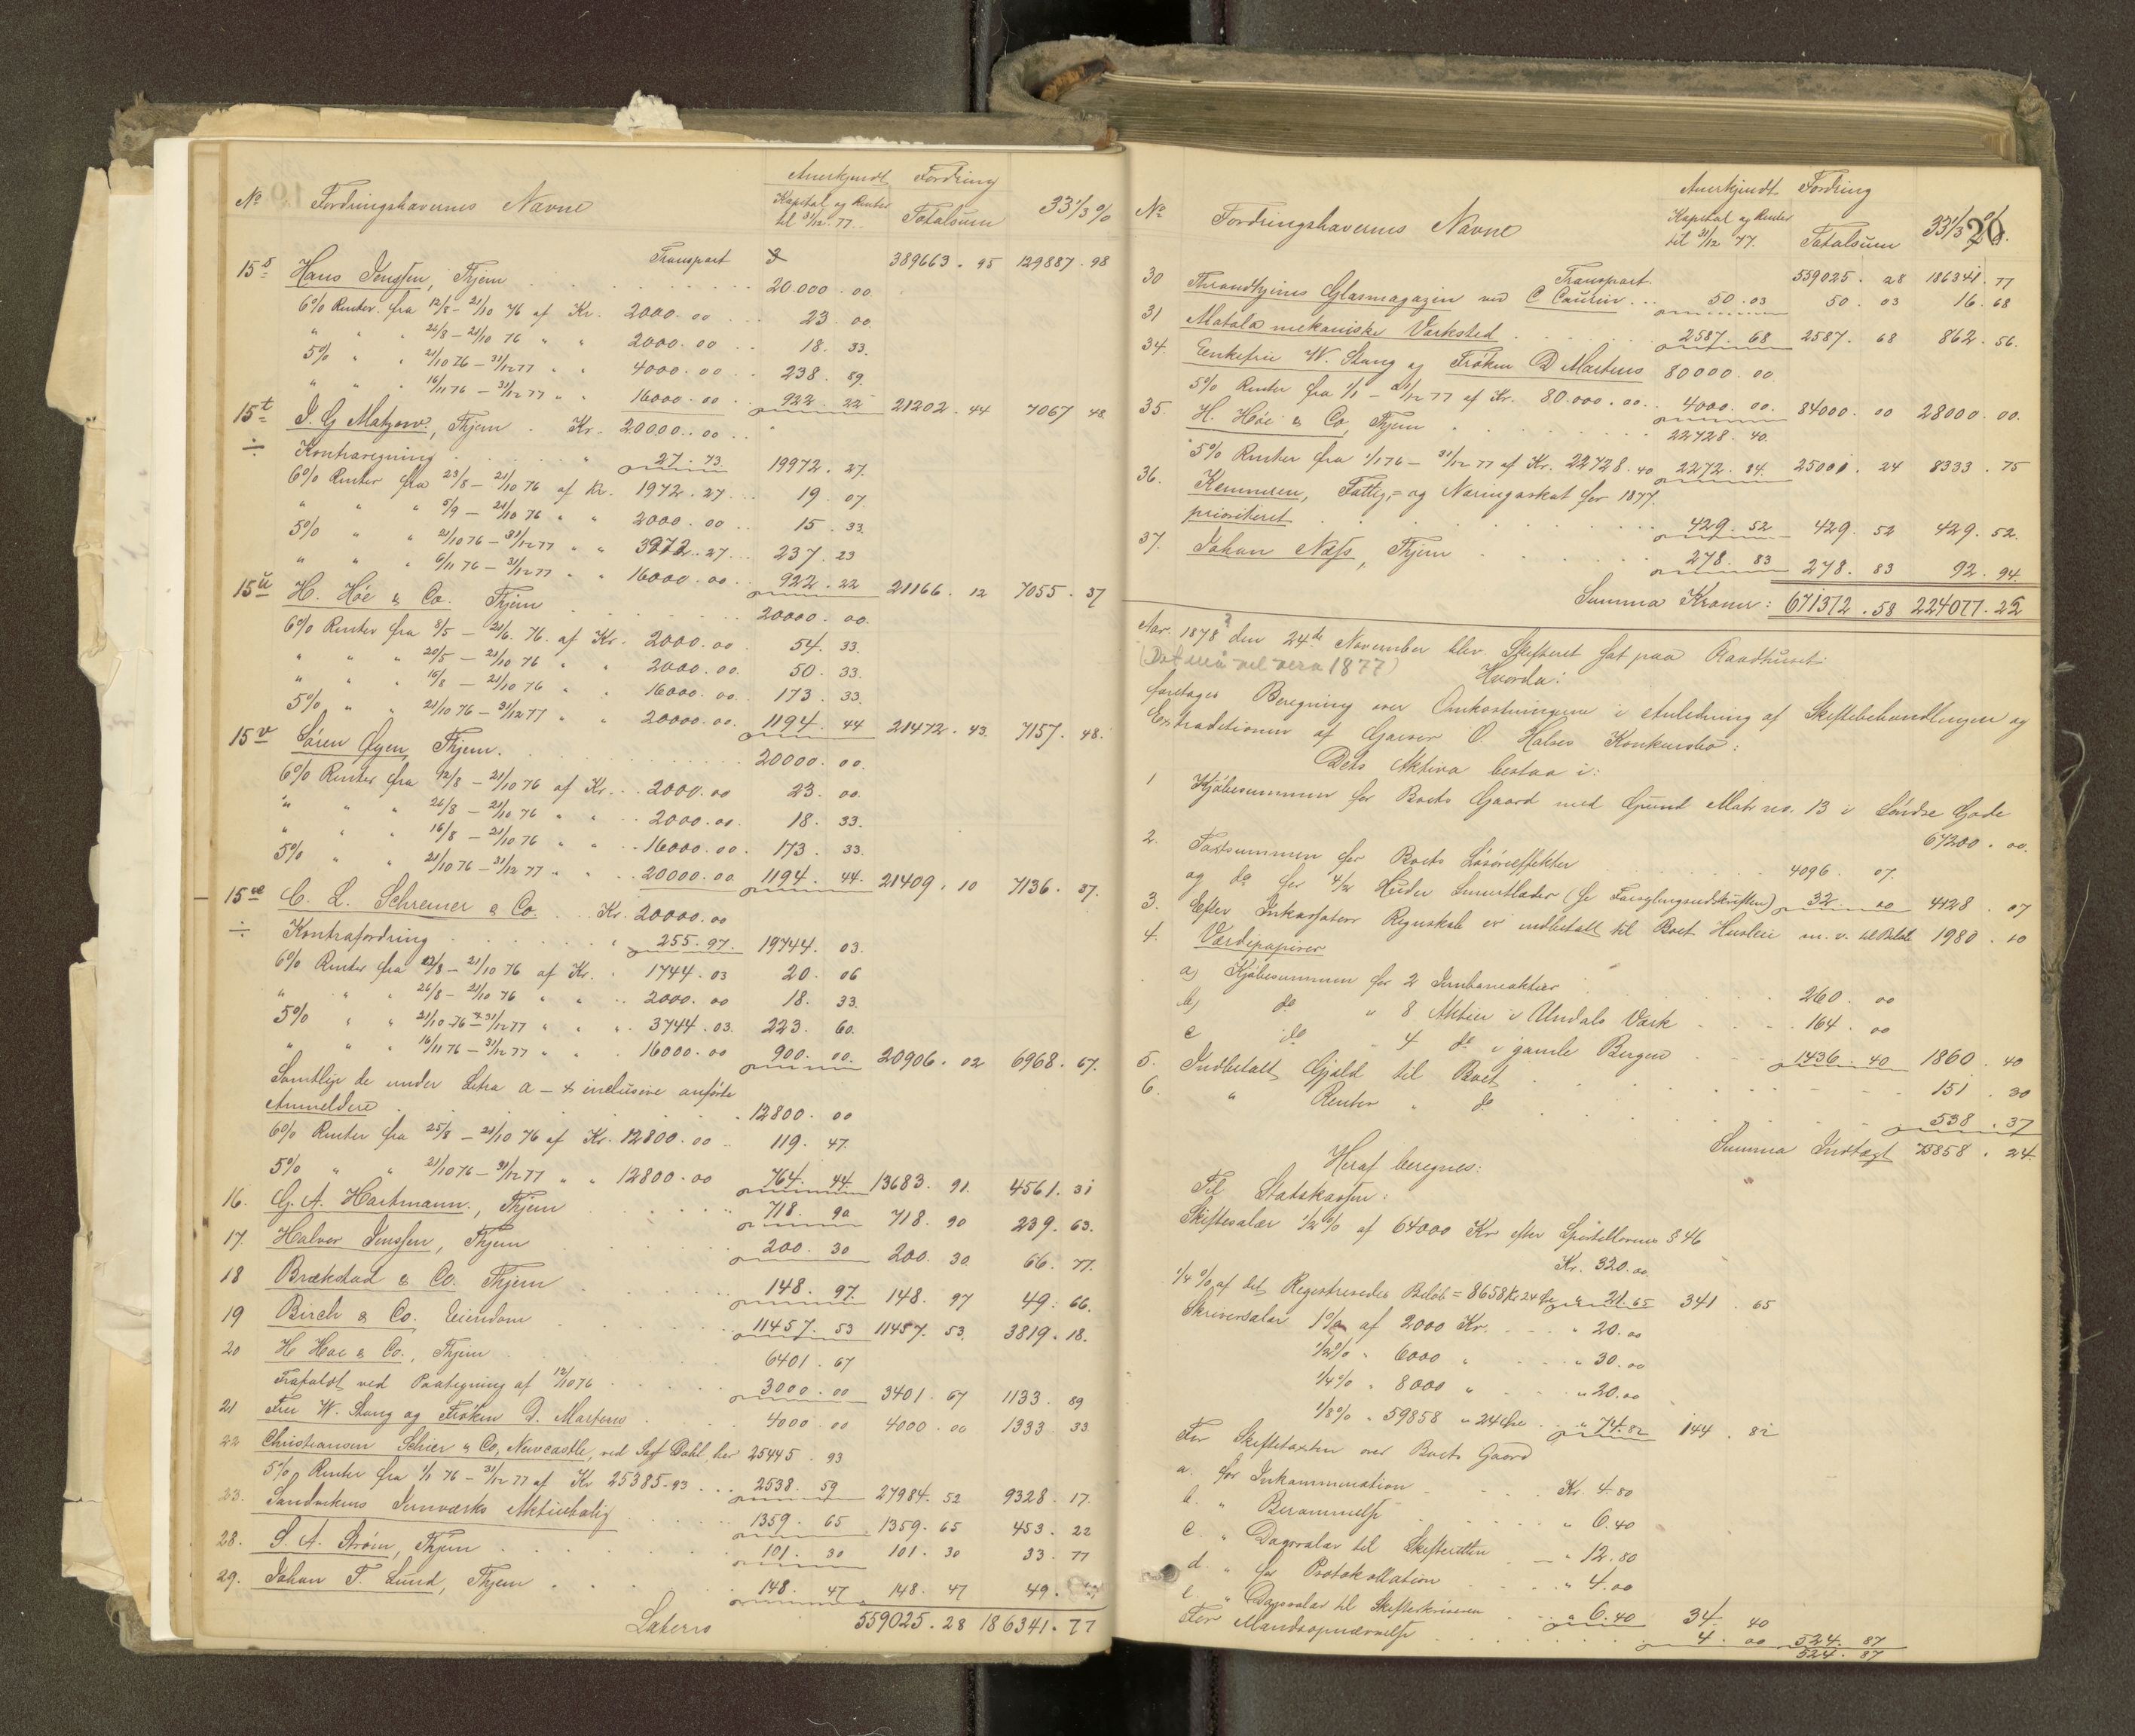 Anerkjendt Fordring
No Fordringshavernes Navne Kapital og Renter til 31/12 77. Totalsum 33 1/3 %
Transport 389663. 95 129887. 98
15s Hans Jenssen, Thjem 20.000. 00
6% Renter fra 12/8 - 21/10 76 af Kr. 2000. 00 23. 00.
" " " 26/8 - 21/10 76 " " 2000. 00 18. 33.
5% " " 21/10 76 - 31/12 77 " " 4000. 00 238. 89.
" " " 16/11 76 - 31/12 77 " " 16000. 00 922. 22 21202. 44 7067 48.
15t I. G Matzow, Thjem. Kr. 20000. 00
÷ Kontraregning " 27. 73. 19972. 27.
6% Renter fra 23/8 - 21/10 76 af Kr. 1972. 27 19. 07.
" " " 5/9 - 21/10 76 " " 2000. 00 15. 33.
5% " " 21/10 76 - 31/12 77 " " 3972. 27 237. 23
" " " 6/11 76 - 31/12 77 " " 16000. 00 922. 22 21166. 12 7055. 37
15u H. Höe & Co. Thjem 20000. 00.
6% Renter fra 8/5 - 21/6. 76. af Kr. 2000. 00 54. 33.
" " " 20/5 - 21/10 76 " " 2000. 00. 50. 33.
" " " 16/8 - 21/10 76 " " 16000. 00. 173. 33.
5% " " 21/10 76 - 31/12 77 " " 20000. 00. 1194. 44 21472. 43. 7157. 48.
15v Sören Øyen, Thjem. 20000. 00.
6% Renter fra 12/8 - 21/10 76 af Kr. 2000. 00 23. 00.
" " " 26/8 - 21/10 76 " " 2000. 00. 18. 33.
" " " 16/8 - 21/10 76 " " 16000. 00. 173. 33.
5% " " 21/10 76 - 31/12 77 " " 20000. 00 1194. 44. 21409. 10 7136. 37.
15 C. L. Schreiner & Co. Kr. 20000. 00
÷ Kontrafordring " 255. 97. 19744. 03.
6% Renter fra 12/8 - 21/10 76 af Kr. 1744. 03 20. 06
" " " 26/8 - 21/10 76 " " 2000. 00 18. 33.
5% " " 21/10 76 - 31/12 77 " " 3744. 03. 223. 60.
" " " 16/11 76 - 31/12 77 " " 16000. 00 900. 00. 20906. 02 6968. 67.
Samtlige de under Litra a - x inclusive anförte
Anmeldere 12800. 00
6% Renter fra 25/8 - 21/10 76 af Kr. 12800. 00 119. 47.
5% " " 21/10 76 - 31/12 77 " " 12800. 00 764. 44. 13683. 91. 4561. 31
16. G. A. Hartmann, Thjem 718. 90 718. 90 239. 63.
17. Halvor Jenssen, Thjem 200. 30 200. 30 66. 77.
18 Brækstad & Co. Thjem 148. 97 148. 97 49. 66.
19 Birch & Co. Eiendom 11457. 53 11457. 53. 3819. 18.
20 H Hoe & Co., Thjem 6401. 67
Frafaldt ved Paategning af 12/10 76 3000. 00 3401. 67 1133. 89
21 Fru W. Stang og Fröken D. Martens 4000. 00 4000. 00 1333 33
22 Christiansen Schier & Co, Newcastle, ved Sagf Dahl, her 25445. 93
5% Renter fra 1/1 76 - 31/12 77 af Kr 25385. 93 2538. 59 27984. 52 9328. 17.
23. Sandvikens Jernværks Aktiebolig 1359. 65 1359. 65 453. 22
28. S. A. Ström, Thjem 101. 30 101. 30 33. 77
29. Johan F. Lund, Thjem 148. 47 148. 47 49.
Lateris 559025. 28 186341. 77
20
Anerkjendt Fordring
No Fordringshavernes Navne Kapital og Renter til 31/12 77. Totalsum 33 1/3 %.
Transport. 559025. 28 186341. 77
30 Throndhjems Glasmagazin ved C Caurin 50. 03 50. 03 16. 68
31 Matala mekaniske Værksted 2587. 68 2587. 68 862. 56.
34. Enkefru W. Stang og Fröken D Martens 80000. 00.
5% Renter fra 1/1 - 31/12 77 af Kr. 80.000. 00. 4000. 00. 84000. 00 28000. 00.
35. H. Höe & Co, Thjem 22728. 40.
5% Renter fra 1/1 76 - 31/12 77 af Kr. 22728. 40 2272. 84. 25001. 24 8333. 75
36. Kemneren, Fattig- og Næringsskat for 1877.
prioriteret 429. 52 429. 52 429. 52.
37. Johan Næss, Thjem 278. 83 278. 83 92. 94
Summa Kroner: 671372. 58 224077. 22
Aar. 1878 ? den 24de November blev Skifteret sat paa Raadhuset:
(Det må vel vera 1877)
Hvorda:
foretages Beregning over Omkostningerne i Anledning af Skiftebehandlingen og
Extraditionen af Garver O. Halses Konkursbo:
Dets Aktiva bestaa i:
1 Kjöbesummen for Boets Gaard med Grund Matr no. 13 i Söndre Gade
67200. 00.
2. Taxtsummen for Boets Lösöreeffekter 4096. 07.
og do for 4/2 Huder Smurtlæder 32 00 4128. 07
3. Efter Inkassators Regnskab er indbetalt til Boet Husleie m. v. til Beløb 1980. 10
4. Værdipapirer
a) Kjöbesummen for 2 Jernbaneaktier 260. 00
b) do " 8 Aktier i Undals Værk 164. 00
c do - 4 do i gamle Bergen 1436. 40 1860. 40
5. Indbetalt Gjæld til Boet 151. 30
6. " Renter " do 538. 37
Summa Indtægt 75858. 24.
Heraf beregnes:
Til Statskassen:
Skiftesalær 1/2% af 64000 Kr efter Sportelloven § 46
Kr. 320. 00
1/4% af det Registrerede Beløb = 8658 Kr 24 Øre " 21. 65 341. 65
Skriversalær 1% af 2000 Kr. " 20. 00
1/2% " 6000 " " 30. 00
1/4% " 8000 " " 20. 00
1/8% " 59858 " 24 Øre " 74. 82 144. 82
For Skiftetaxten over Boets Gaard
a. for Inkammination Kr. 4. 80
b. " Berammelse " 6. 40
c. " Dagsalær til Skifteretten " 12. 80
d. " for Protokollation " 4. 00
e. " Dagsalær til Skifteskriveren " 6. 40 34. 40
For Mandsopnævnelse 4. 00 524. 87
524. 87